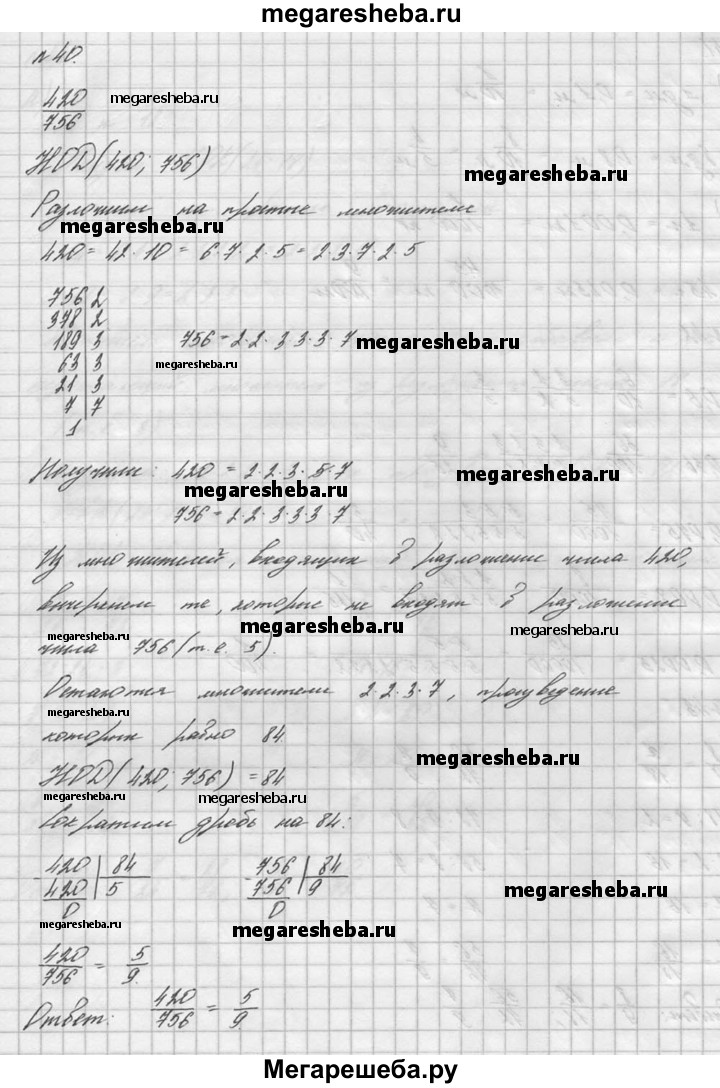 megaresheba.ru
п 40.
420
756
megaresheba.ru
НОД(420; 756)
megaresheba.ru
Разложим на простые множители
megaresheba.ru
420 = 42·10 = 6·7·2·5 = 2·3·7·2·5
756|2
378|2
189|3
63|3
21|3
7|7
1
756 = 2·2·3·3·3·7
megaresheba.ru
megaresheba.ru
Получили: 420 = 2·2·3·5·7
megaresheba.ru
megaresheba.ru
756 = 2·2·3·3·3·7
Из множителей, входящих в разложение числа 420,
вычеркнем те, которые не входят в разложение
megaresheba.ru
megaresheba.ru
megaresheba.ru
числа 756 (т.е. 5).
Остаются множители 2·2·3·7, произведение
megaresheba.ru
которых равно 84
megaresheba.ru
НОД(420; 756) = 84
megaresheba.ru
megaresheba.ru
Сократим дробь на 84:
- 420|84
420|5
0
- 756|84
756|9
0
megaresheba.ru
megaresheba.ru
megaresheba.ru
420/756 = 5/9.
Ответ: 420/756 = 5/9.
Мегарешеба.ру